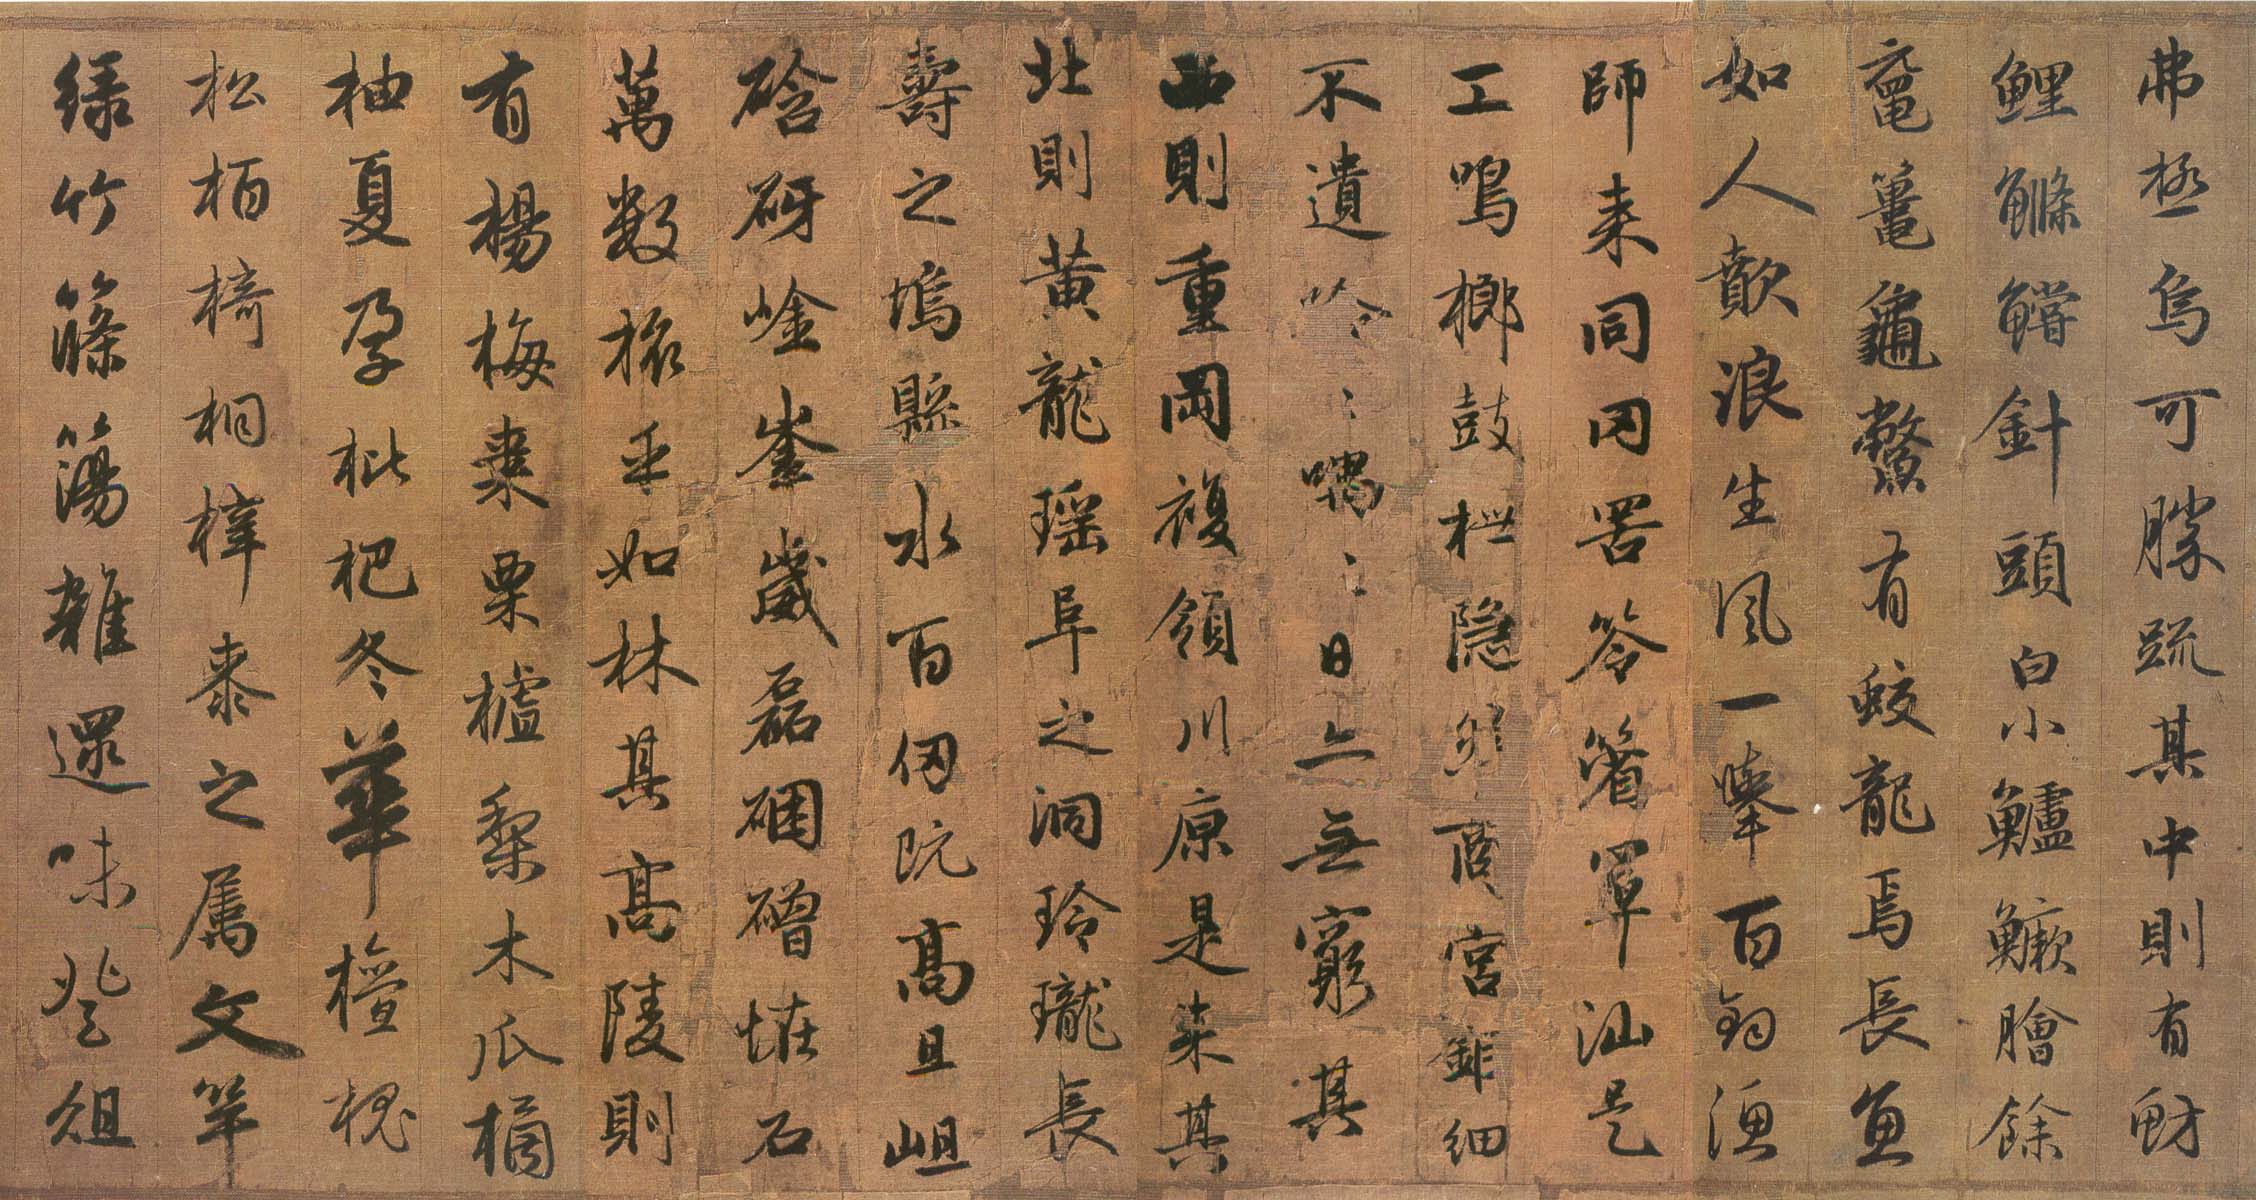 弗極烏可勝疏其中則有魴
鯉鰷鱨針頭白小鱸鱖膾餘
黿鼉龜鱉有蛟龍焉長魚
如人歕浪生風一舉百鈞漁
師來同罔罟笭箵罩汕是
工鳴榔鼓枻隱然商宮鮮細
不遺噞〻喁〻日亡無窮其
西則重岡複領川原是來其
北則黃龍瑤阜之洞玲瓏長
壽之塢縣水百仞既高且岨
硌砑崯崟崴磊硱磳怪石
萬數旅乎如林其高陵則
有楊梅棗栗樝梨木瓜橘
柚夏孕枇杷冬華檀槐
松柏椅桐梓桼之屬文竿
綠竹篠簜雜還味登俎